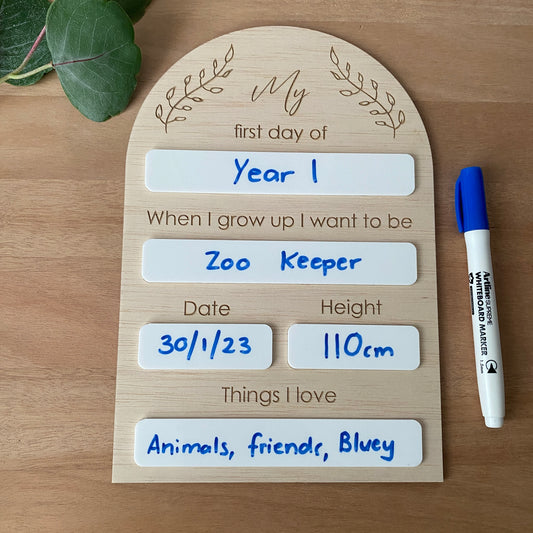 My
first day of
Year 1
When I grow up I want to be
Zoo Keeper
Date
Height
30/1/23
110cm
Things I love
Animals, friends, Bluey
Artline SUPREME
WHITEBOARD MARKER